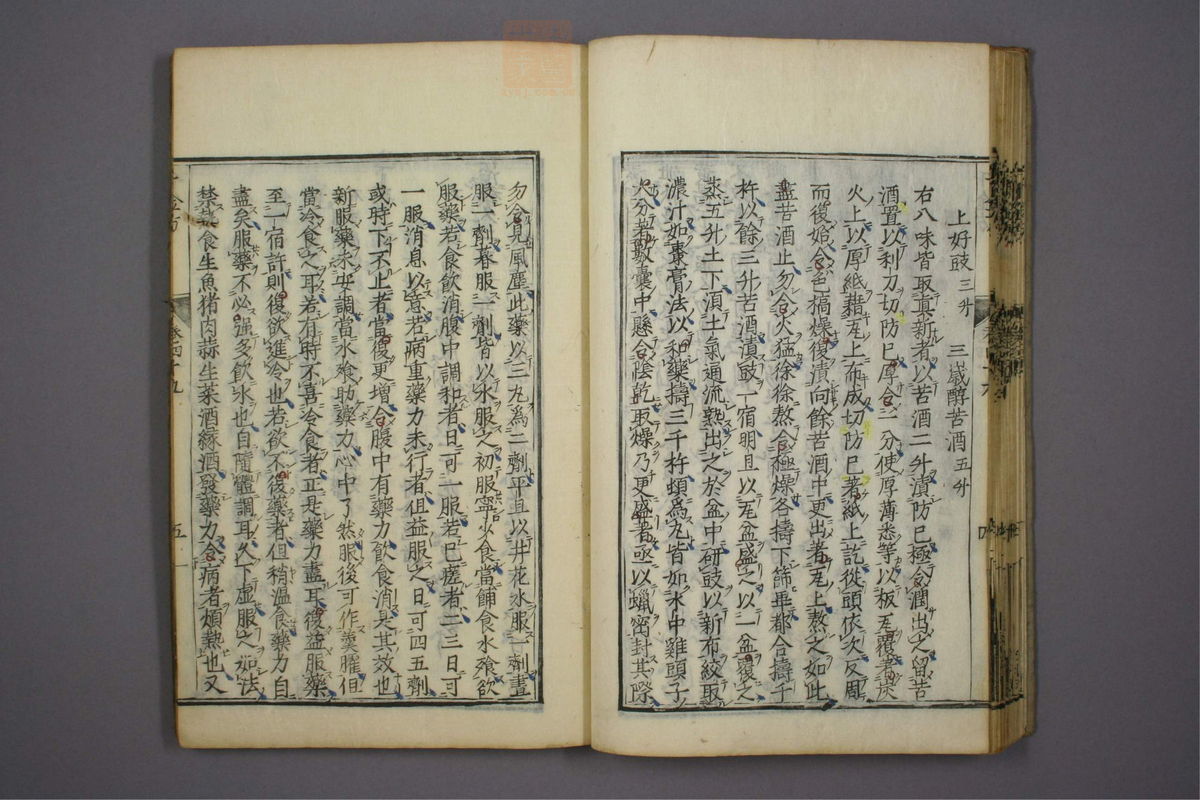 上好豉三升 三歲醇苦酒五升
右八味皆取真新者以苦酒二升漬防巳極令潤出之留苦
酒置以利刀切防巳厚令一分使厚薄悉等以板瓦覆著灰
火上以厚紙藉瓦上布成切防巳著紙上訖從頭依次反周
而復始令色槁燥復漬向餘苦酒中更出著瓦上熬之如此
盡苦酒止勿令火猛徐徐熬令極燥各擣下篩畢都合擣千
杵以餘三升苦酒漬豉一宿明旦以瓦盆盛之以一盆覆之
蒸五升土下須土氣通流熟出之於盆中研豉以新布絞取
濃汁如棗膏法以和藥擣三千杵頓為丸皆如水中雞頭子
大分著數囊中懸令陰乾取燥乃更盛著亟以蠟密封其際
勿令見風塵此藥以三丸為一劑平旦以井花水服一劑晝
服一劑暮服一劑皆以水服之初服寧以食當餔食水飧欲
服藥若食飲消腹中調和者日可一服若巳瘥者二三日可
一服消息以意若病重藥力未行者但益服之日可四五劑
或時下不止者當復更增令腹中有藥力飲食消是其效也
新服藥未安調當水飧助藥力心中了然服後可作羹臛但
當冷食之耳若有時不喜冷食者正是藥力盡耳復益服藥
至一宿許則復欲進冷也若欲不復藥者但稍溫食藥力自
盡矣服藥不必強多飲水也自隨體調耳久下虛服之如法
禁熱食生魚豬肉蒜生菜酒緣酒發藥力令病者煩熱也又
卷四十九
五